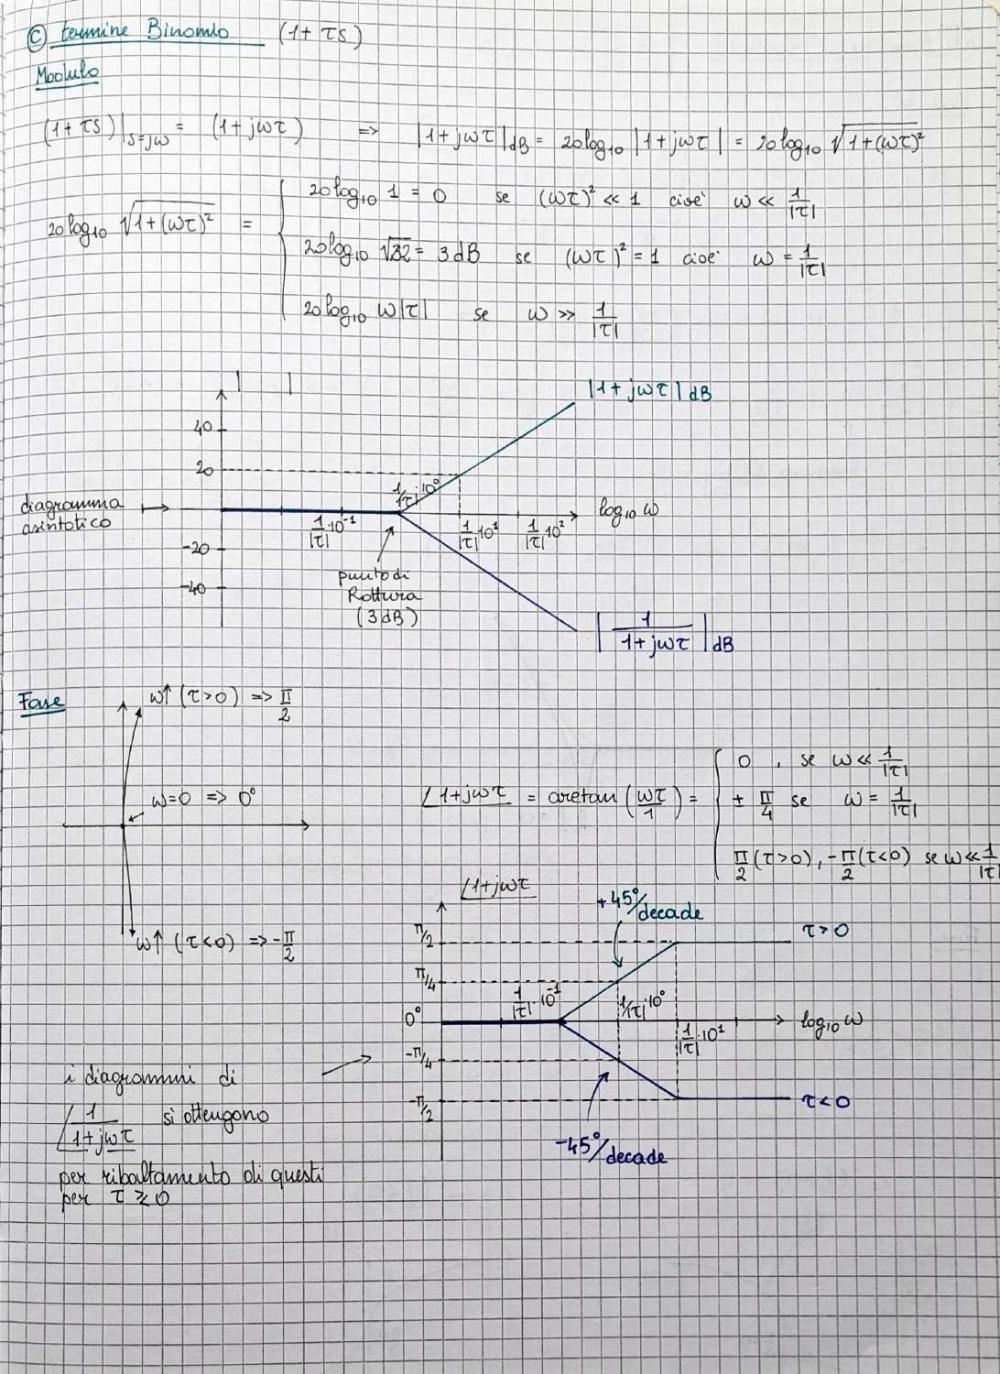 ⓒ termine Binomio (1+τs)
Modulo
(1+τs)|s=jω = (1+jωτ) => |1+jωτ|dB = 20log10 |1+jωτ| = 20log10 √(1+(ωτ)²)
20log10 √(1+(ωτ)²) =
20log10 1 = 0 se (ωτ)² << 1 cioè ω << 1/|τ|
20log10 √2 = 3dB se (ωτ)² = 1 cioè ω = 1/|τ|
20log10 ω|τ| se ω >> 1/|τ|
| |
|1+jωτ|dB
40
20
1/|τ|·10⁰
diagramma
asintotico
log10 ω
1/|τ|·10⁻¹
1/|τ|·10¹
1/|τ|·10²
-20
-40
punto di
Rottura
(3dB)
|1/(1+jωτ)|dB
Fase
ω↑ (τ>0) => π/2
ω=0 => 0°
∠1+jωτ = arctan(ωτ/1) =
0 , se ω << 1/|τ|
± π/4 se ω = 1/|τ|
π/2 (τ>0), -π/2 (τ<0) se ω << 1/|τ|
ω↑ (τ<0) => -π/2
∠1+jωτ
+45°/decade
π/2
τ>0
π/4
1/|τ|·10⁻¹
1/|τ|·10⁰
0°
log10 ω
1/|τ|·10¹
-π/4
-π/2
τ<0
-45°/decade
i diagrammi di
∠1/(1+jωτ) si ottengono
per ribaltamento di questi
per τ ≷ 0